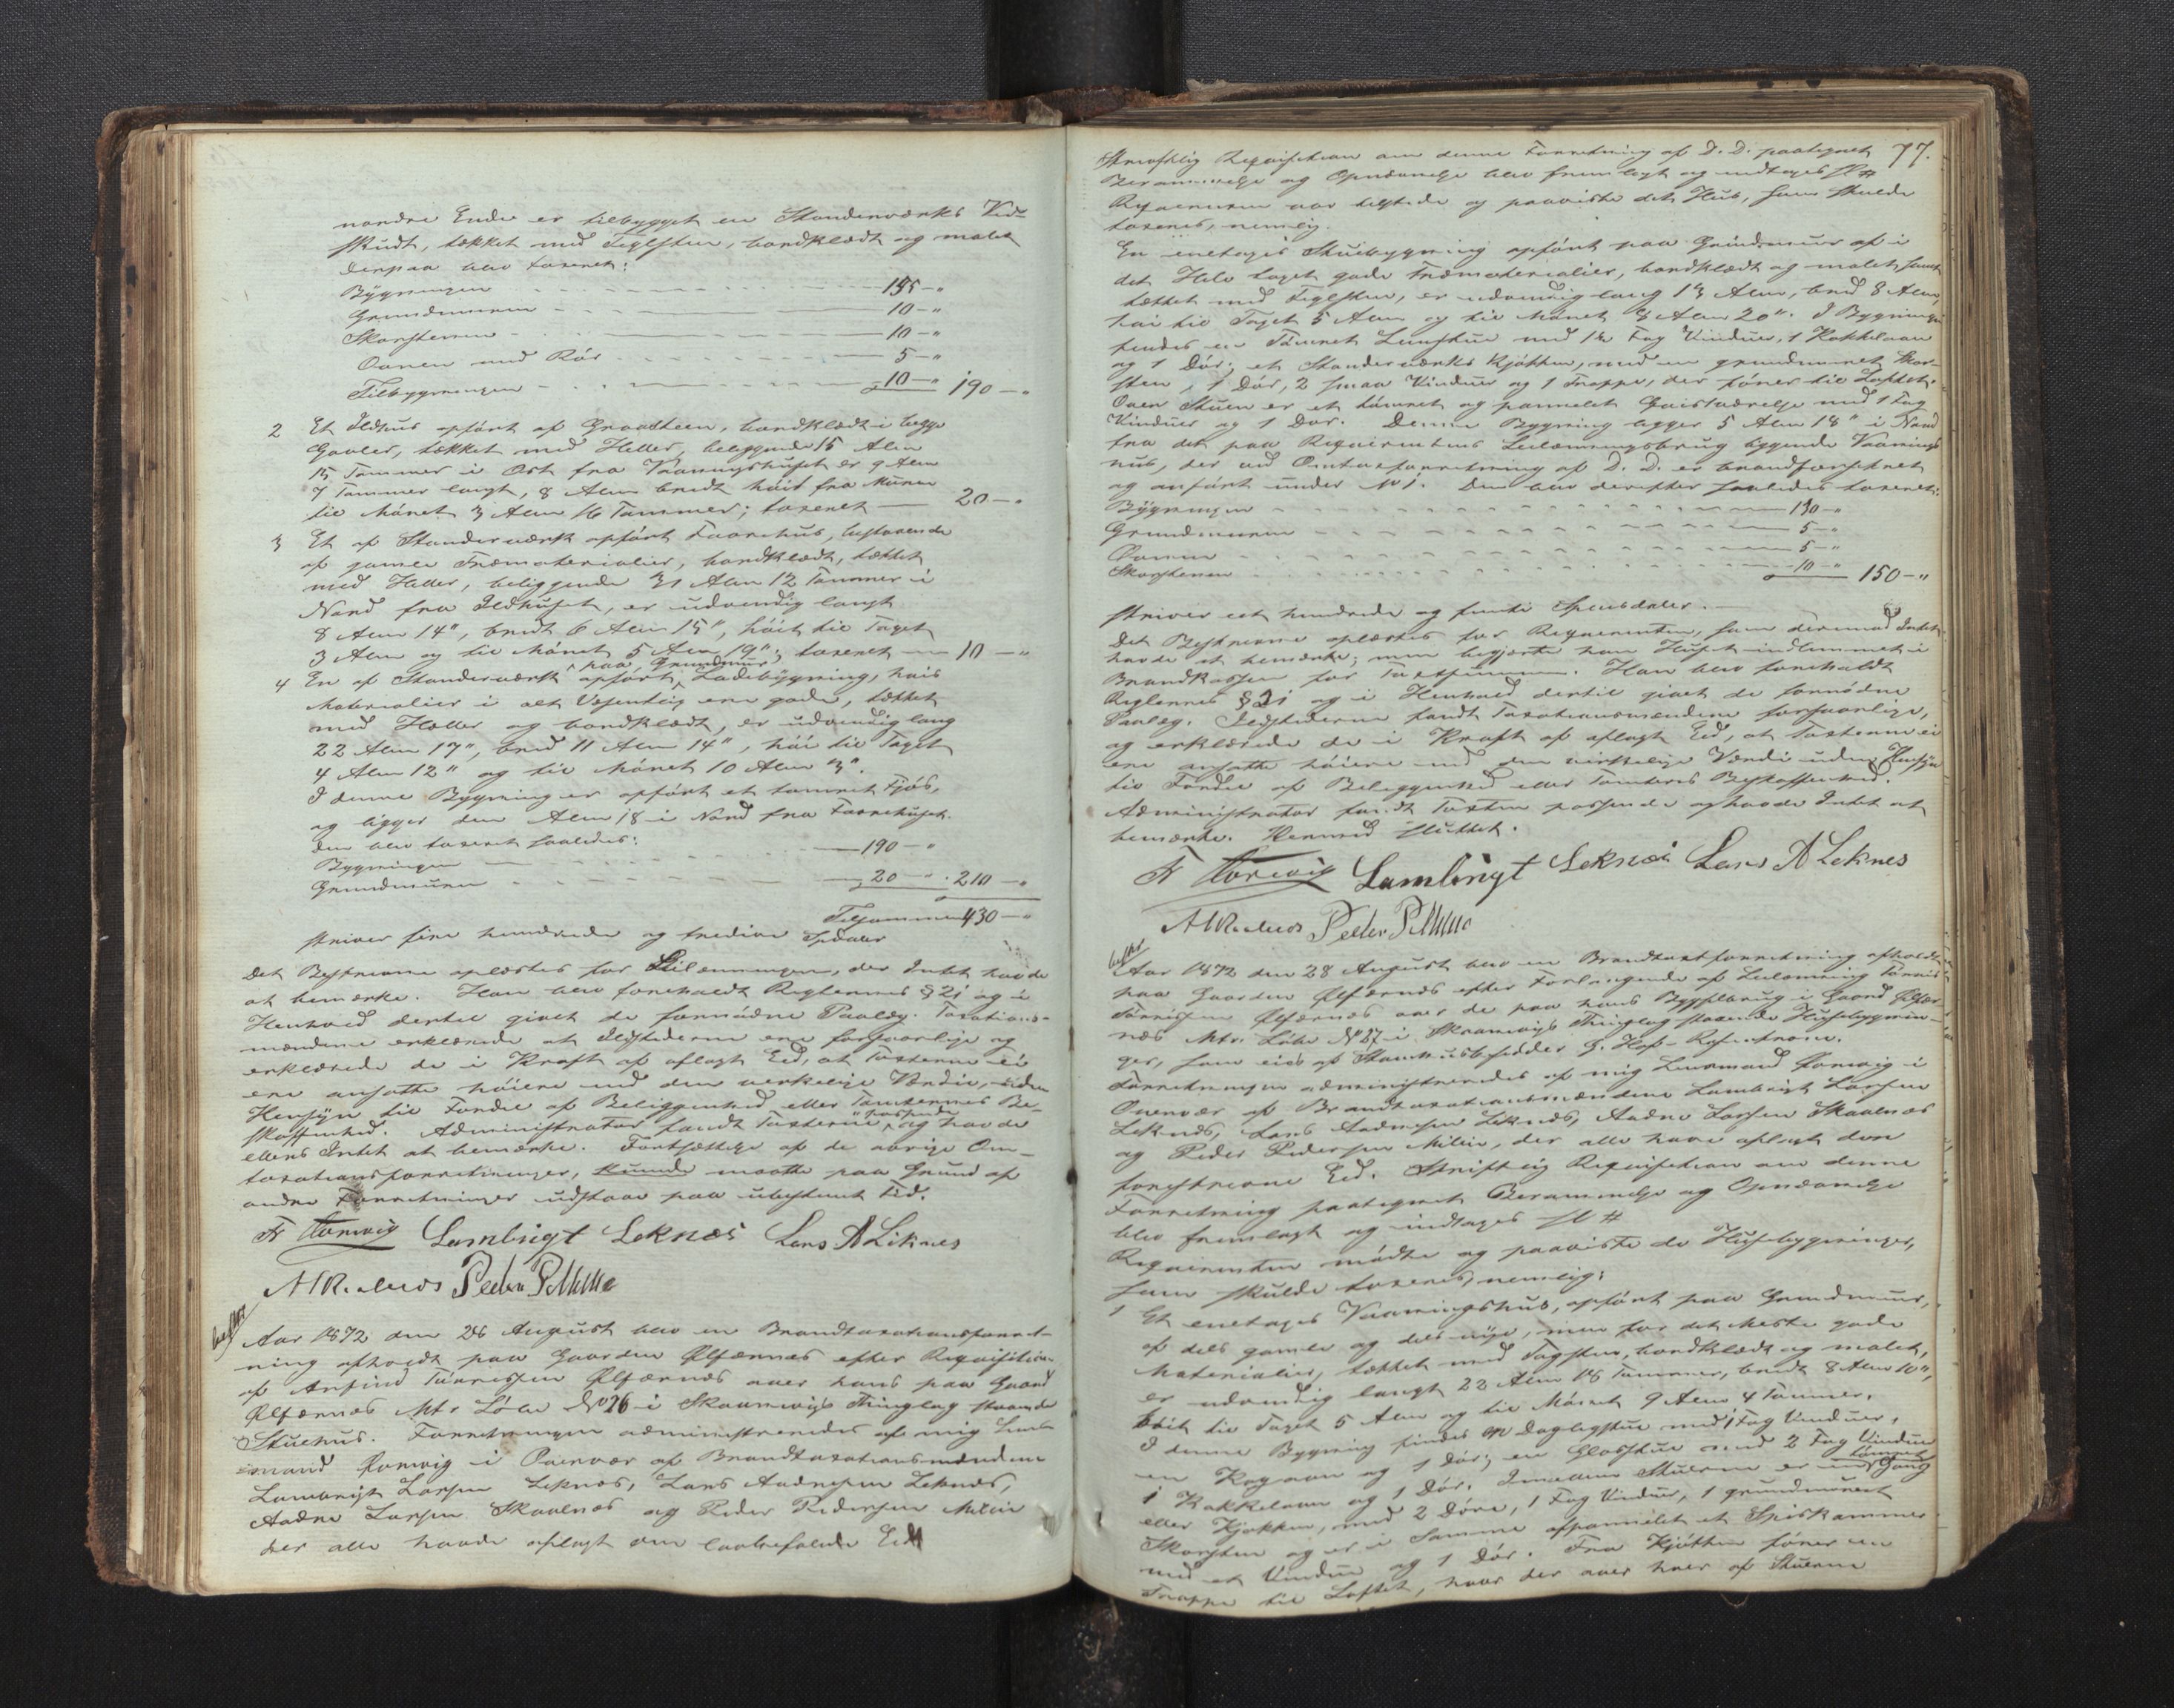 nordre Ende er tilbygget en Standerværks Ved-
skudt, tækket med Teglsten, bordklædt og malet
derpaa blev taxeret:
Bÿgningen 155-"
Grundmuren 10-"
Skorstenen 10-"
Ovnen med Rör 5-"
Tilbygningen 10-" 190-"
2 Et Ildhus opfört af Graasteen, bordklædt i begge
Gavler, tækket med Heller, beliggende 15 Alen
15 Tommer i Öst fra Vaaningshuset er 9 Alen
7 Tommer langt, 8 Alen bredt höit fra Muren
til Mönet 3 Alen 16 Tommer; taxeret 20-"
3 Et af Standerværk opfört Faarehus, bestaaende
af gamle Træmaterialier, bordklædt, tækket
med Heller, beliggende 31 Alen 12 Tommer i
Nord fra Ildhuset, er udvendig langt
8 Alen 14", bredt 6 Alen 15", höit til Taget
3 Alen og til Mönet 5 Alen 19"; taxeret 10-"
4 En af Standerværk opfört paa Grundmuur Ladebÿgning, hvis
Materialier i alt Væsentlig ere gode, tækket
med Heller og bordklædt, er udvendig lang
22 Alen 17", bred 11 Alen 14", höi til Taget
4 Alen 12" og til Mönet 10 Alen 3".
I denne Bygning er opfört et tömret Fjös,
og ligger den Alen 18 i Nord fra Faarehuset.
Den blev taxeret saaledes:
Bygningen 190-"
Grundmuren 20-" 210-"
Tilsammen 430-"
skriver fire hundrede og tredive Spdaler
Det Beskrevne oplæstes for Leilændingen, der Intet havde
at bemærke. Han blev foreholdt Reglernes § 21 og i
Henhold dertil givet de fornödne Paalæg. Taxations-
mændene erklærede at Ildstederne ere forsvarlige og
erklærede de i Kraft af aflagt Eed, at Taxterne ei
ere ansatte höiere end den virkelige Værdie, uden
Hensÿn til Fordel af Beliggenhed eller Tomternes Be-
skaffenhed. Administrator fandt Taxterne passende og havde
ellers Intet at bemærke. Fortsættelse af de övrige Om-
taxationsforretninger, kunde maatte paa Grund af
andre Forretninger udstaae paa ubestemt Tid.
Fr Torvig Lambrigt Leknæs Lars A Leknes
Peder P Milde
Aar 1872 den 28 August blev en Brandtaxationsforret-
ning afholdt paa Gaarden Ølfærnæs efter Requisition
af Anfind Tönnessen Ølfærnæs over hans paa Gaard
Ølfærnæs Mtr. Löbe No 26 i Skaanevigs Thinglag staaende
Stuehus. Forretningen administreredes af mig Lens-
mand Torvig i Overvær af Brandtaxationsmændene
Lambrigt Larsen Leknæs, Lars Andresen Leknæs,
Andre Larsen Skaalnæs og Peder Pedersen Milde
der alle havde aflagt den lovbefalede Eed
77.
Skriftlig Requisition om denne Forretning af D. D. paategnet
Berammelse og Opnævnelse blev fremlagt og indtages S. #
Requirenten var tilstede og paaviste det Hus, som skulde
taxeres, nemlig:
En eenetages Stuebygning opfört paa Grundmuur af i
det Hele taget gode Træmaterialier, bordklædt og malet, samt
tækket med Teglsten, er udvendig lang 13 Alen, bred 8 Alen,
höi til Taget 5 Alen og til Mönet 8 Alen 20". I Bygningen
findes en Tömret Lemstue med 1½ Fag Vinduer, 1 Kakkelovn
og 1 Dör; et Standerværks Kjökken, med en grundmuret Skor-
sten, 1 Dör, 2 smaa Vinduer og 1 Trappe, der förer til Loftet.
Over Stuen er et tömret og pannelet Gaistværelse med 1 Fag
Vinduer og 1 Dör. Denne Bygning ligger 5 Alen 18" i Nord
fra det paa Requirentens Leilændingsbrug liggende Vaanings-
hus, der ved Omtaxforretning af D. D. er brandforsikret
og anfört under No 1. Den blev derefter saaledes taxeret:
Bÿgningen 130-"
Grundmuren 5-"
Ovnen 5-"
Skorstenen 10-" 150-"
skriver eet hundrede og femti Speciedaler.
Det Beskrevne oplæstes for Requirenten, som derimod Intet
havde at bemærke; men begjærte han Huset indlemmet i
Brandkassen for Taxtsummen. Han blev foreholdt
Reglernes § 21 og i Henhold dertil givet de fornödne
Paalæg. Ildstederne fandt Taxationsmændene forsvarlige,
og erklærede de i Kraft af aflagt Eed, at Taxterne ei
ere ansatte höiere end den virkelige Værdi uden Hensÿn
til Fordel af Beliggenhed eller Tomtens Beskaffenhed.
Administrator fandt Taxten passende og havde Intet at
bemærke. Hermed sluttet.
Fr Torvig Lambrigt Leknæs Lars A Leknes
Peder P Milde
Aar 1872 den 28 August blev en Brandtaxtforretning afholdt
paa Gaarden Ølfærnæs efter Forlangende af Leilænding Tönnes
Tönnessen Ølfærnæs over de paa hans Bygselbrug i Gaard Ølfær-
næs Mtr. Löbe No 27 i Skaanevigs Thinglag staaende Husebygnin-
ger, som eies af Stamhusbesidder G. Hoff-Rosenkrone.
Forretningen administreredes af mig Lensmand Torvig i
Overvær af Brandtaxationsmændene Lambrigt Larsen
Leknæs, Lars Andresen Leknæs, Andre Larsen Skaalnæs
og Peder Pedersen Milde, der alle have aflagt den
foreskrevne Eed. Skriftlig Requisition om denne
Forretning paategnet Berammelse og Opnævnelse
blev fremlagt og indtages S. #
Requirenten mödte og paaviste de Husebygninger,
som skulde taxeres, nemlig:
1 Et eenetages Vaaningshus, opfört paa Grundmuur,
af dels gamle og dels nye, men for det Meste gode
Materialier, tækket med Tagsten, bordklædt og malet,
er udvendig langt 22 Alen 18 Tommer, bredt 8 Alen 10",
höit til Taget 5 Alen og til Mönet 9 Alen 4 Tommer.
I denne Bygning findes en Dagligstue med 1 Fag Vinduer,
en Kogovn og 1 Dör; en Glasstue med 2 Fag Vinduer
1 Kakkelovn og 1 Dör. Imellem Stuerne er en tömret Gang
eller Kjökken, med 2 Döre, 1 Fag Vinduer, 1 grundmuret
Skorsten og er i Samme afpannelet et Spiskammer
med et Vindue og 1 Dör. Fra Kjökken förer en
Trappe til Loftet, hvor der over hver af Stuerne